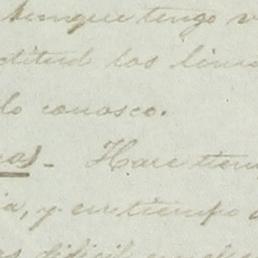 Aunque tengo v
ctitud los line
lo conosco.
os. Hace tiem
ia, y en tiempo d
os dificil